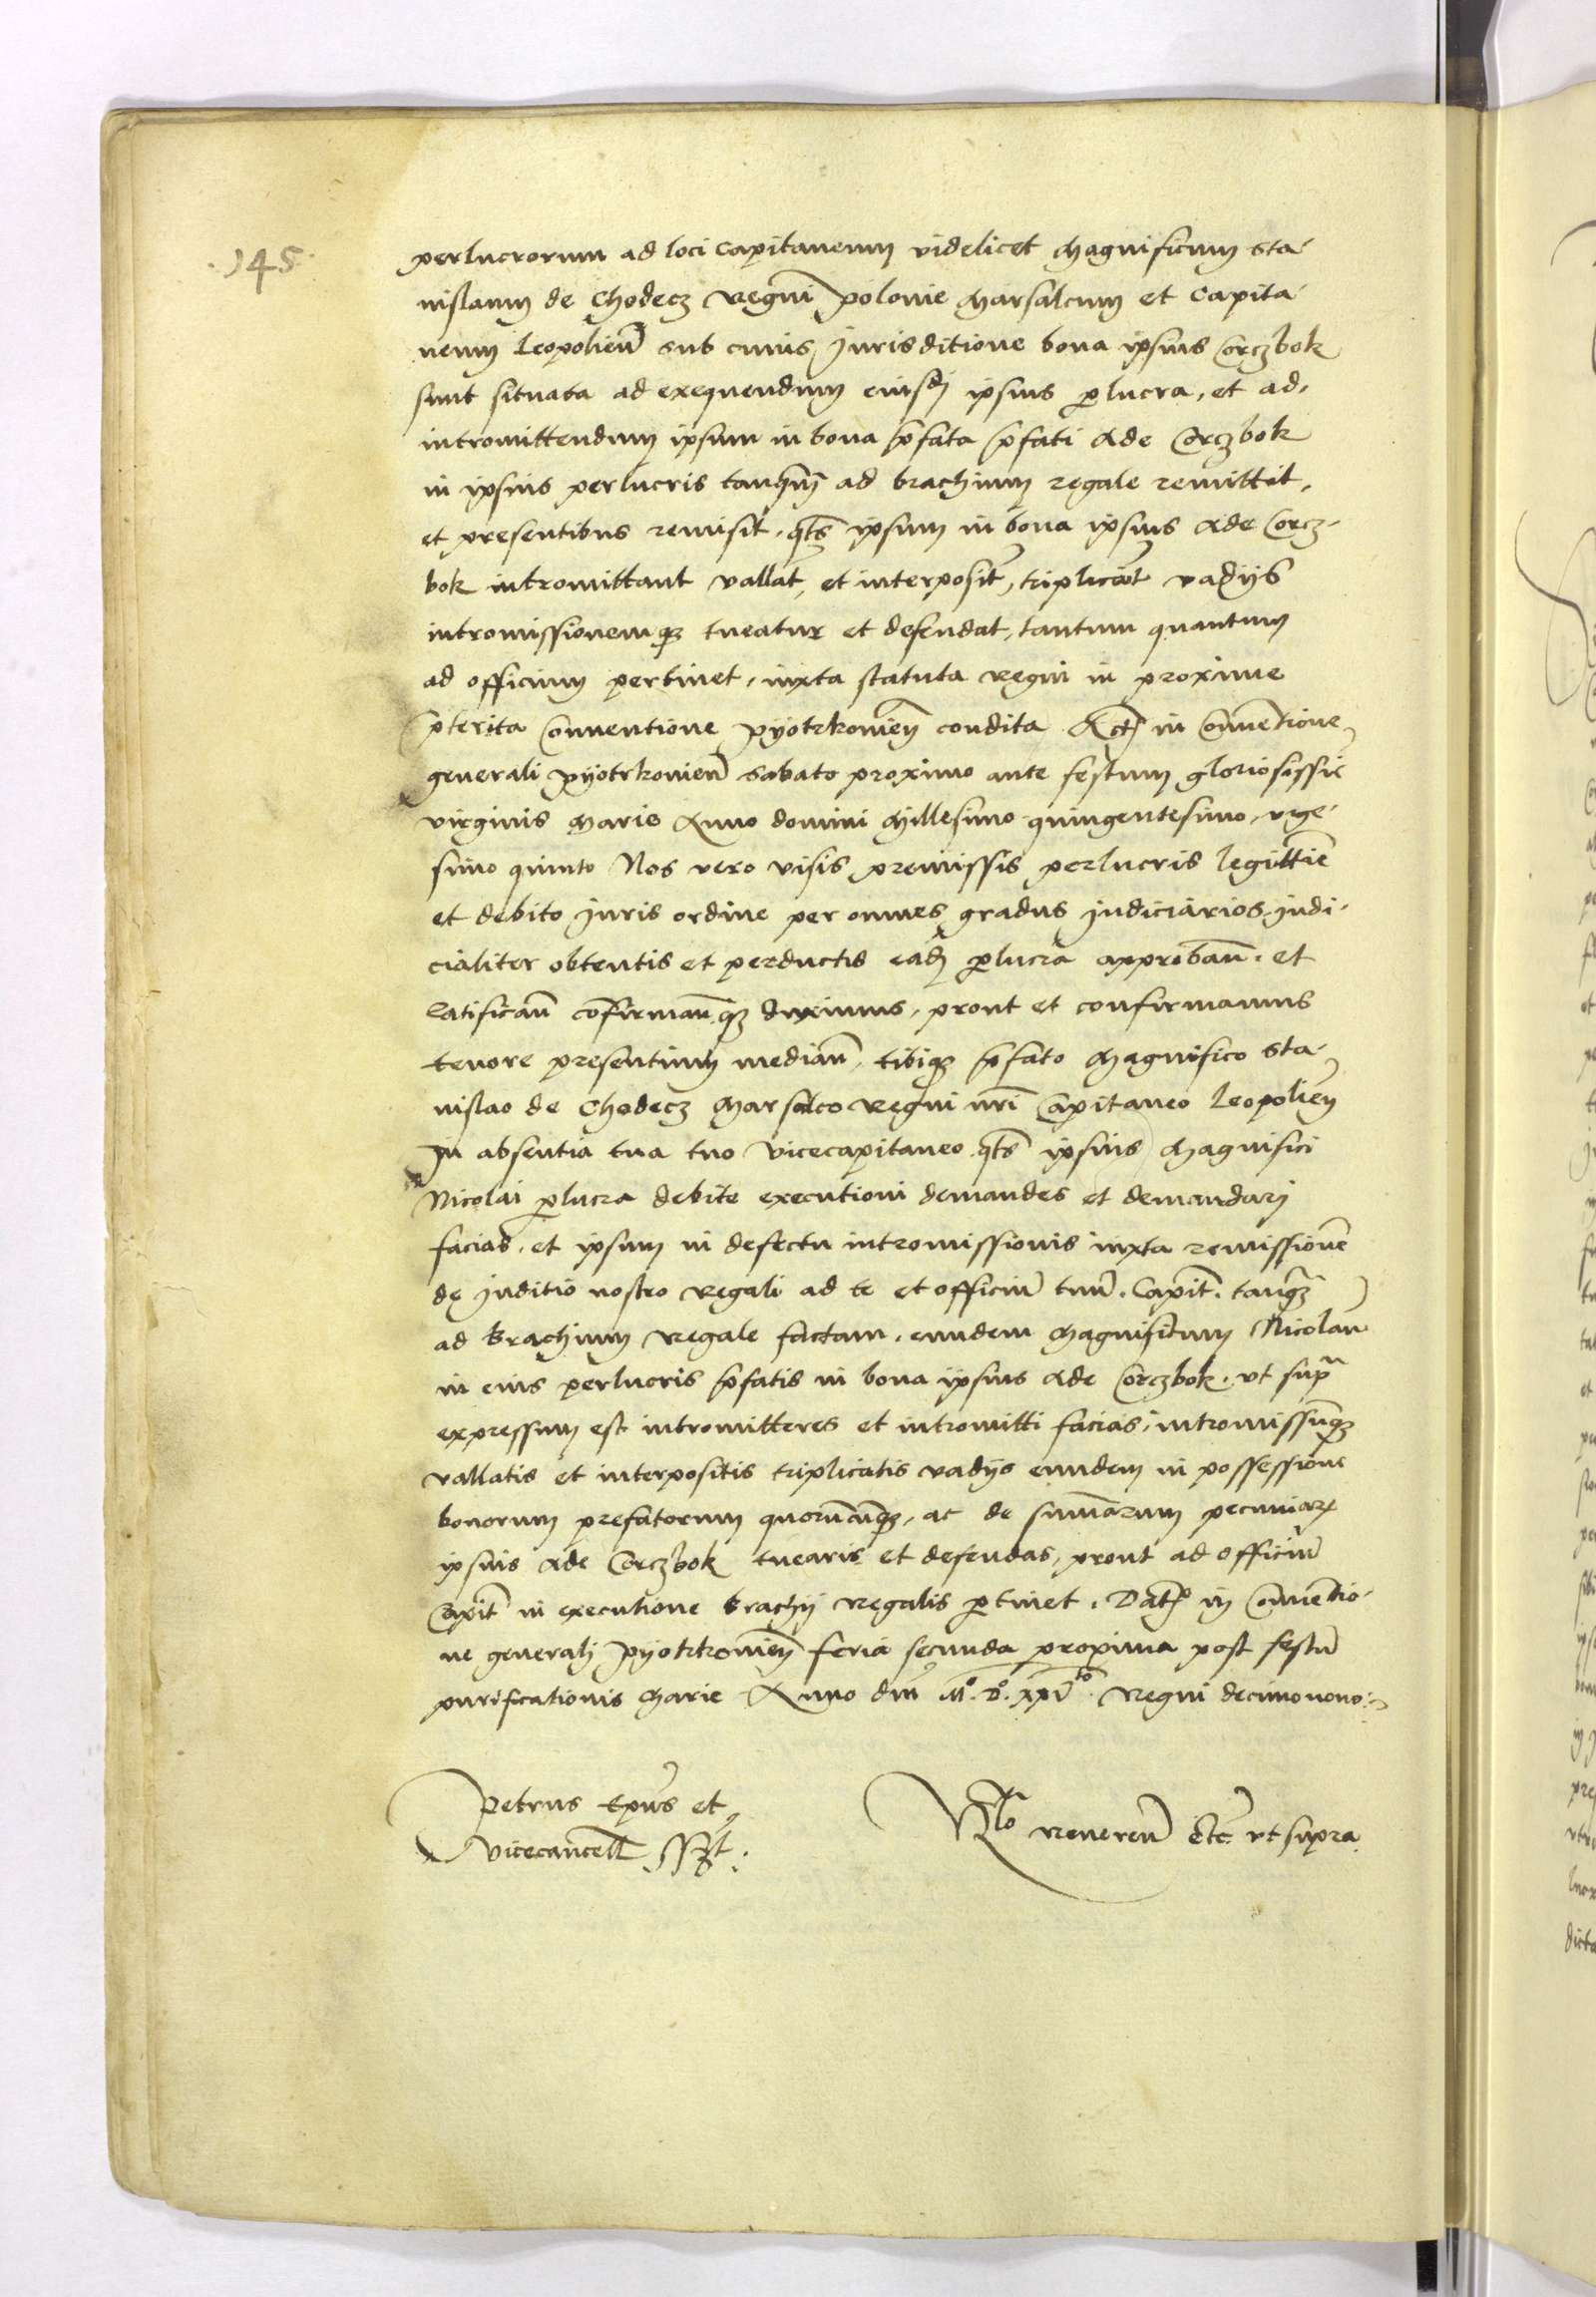 145
perlucrorum ad loci Capitaneum videlicet Magnificum Sta-
nislaum de Chodecz Regni polonie Marsalcum et Capita-
neum Leopolien̄ sub cuius Jurisditione bona ipsius Corczbok
sunt situata ad exequendum eiusdē ipsius p̱lucra, et ad-
intromittendum ipsum in bona p̄fata p̄fati Ade Corczbok
in ipsius perlucris tanq̄m ad brachium regale remittit,
et presentibus remisit, qt̄s ipsum in bona ipsius Ade Corcz-
bok intromittant vallat̄, et interposit̄, triplicat̄ vadijs
intromissionemqȝ tueatur et defendat, tantum quantum
ad officium pertinet, iuxta statuta regni in proxime
p̄terita Conuentione pyotrkovien̄ condita Act̄ in Conuentione
generali pyotrkovien̄ Sabato proximo ante festum gloriosissie
virginis Marie Anno domini Millesimo quingentesimo, vige-
simo quinto Nos vero visis premissis perlucris legittīe
et debito Juris ordine per omnes gradus Judiciarios Judi-
cialiter obtentis et perductis eadē p̱lucra approban̄. et
ratifican̄ cōfirman̄qȝ duximus, prout et confirmamus
tenore presentium median̄, tibiqȝ p̄fato Magnifico Sta-
nislao de Chodecz Marsalco Regni nr̄i Capitaneo Leopolien̄
In absentia tua tuo Vicecapitaneo qt̄s ipsius Magnifici
Nicolai p̱lucra debite executioni demandes et demandari
facias, et ipsum in defectu intromissionis iuxta remissionē
de Juditio nostro Regali ad te et officiū tuū. Capit̄. tanqȝ
ad brachium Regale factam, eundem Magnificum Nicolaū
in eius perlucris p̄fatis in bona ipsius Ade Corczbok. vt supra
expressum est intromitteres et intromitti facias, intromissūqȝ
vallatis et interpositis triplicatis vadijs eundem in possessione
bonorum prefatorum quorūcūqȝ, ac de summarum pecuniarꝝ
ipsius Ade Corczbok tuearis et defendas, prout ad officiū
Capit̄ in executione brachij Regalis p̱tinet. Dat̄ in Conuentio-
ne generali pyotrkovien̄ feria secunda proxima post festū
purificationis Marie Anno dn̄i M°. D°. xxvito Regni decimonono
Petrus Ep̄us et
Vicecancell̄ sszt
Rlo Reueren̄ etc̄ vt supra